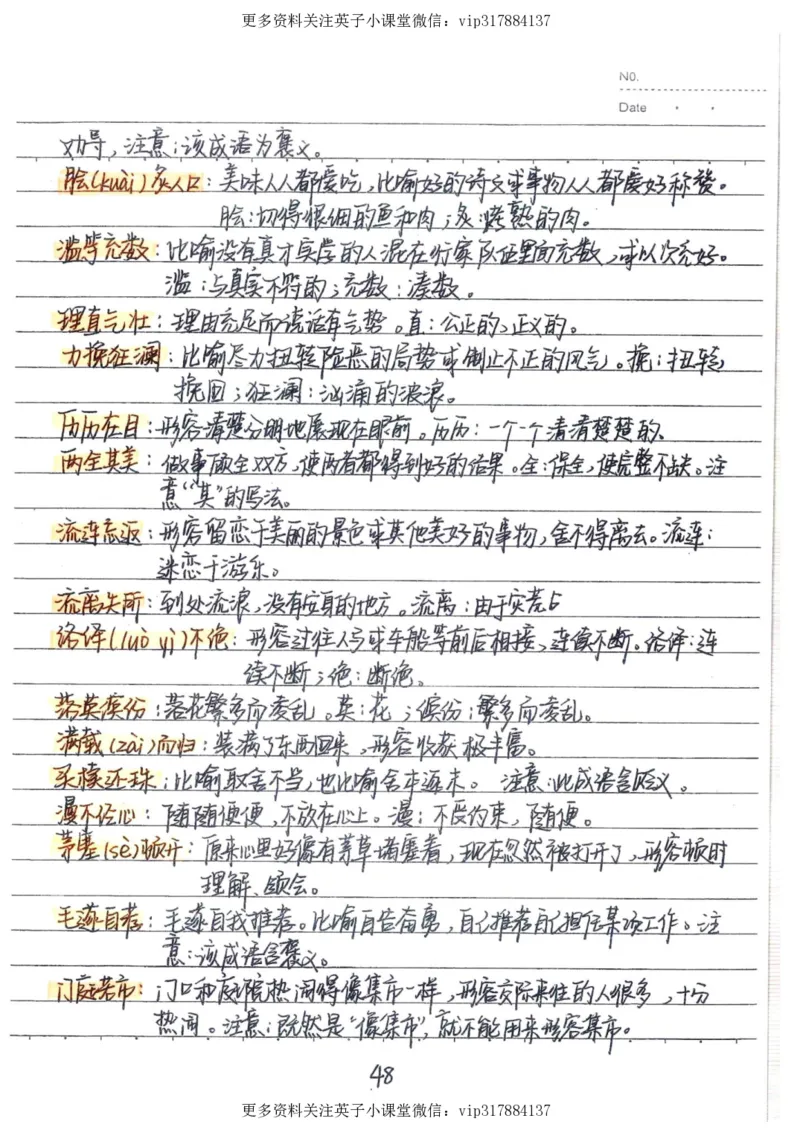 更多资料关注英子小课堂微信：vip317884137
NO.
Date
劝导，注意：该成语为褒义。
脍(kuài)炙人口：美味人人都爱吃，比喻好的诗文或事物人人都爱好称赞。
脍：切得很细的鱼和肉；炙：烤熟的肉。
滥竽充数：比喻没有真才实学的人混在行家队伍里面充数，或以次充好。
滥：与真实不符的；充数：凑数。
理直气壮：理由充足而说话有气势。直：公正的、正义的。
力挽狂澜：比喻尽力扭转险恶的局势或制止不正的风气。挽：扭转，
挽回；狂澜：汹涌的波浪。
历历在目：形容清楚分明地展现在眼前。历历：一个一个清清楚楚的、
两全其美：做事顾全双方，使两者都得到好的结果。全：保全，使完整不缺。注
意“其”的写法。
流连忘返：形容留恋于美丽的景色或其他美好的事物，舍不得离去。流连：
迷恋于游乐。
流离失所：到处流浪，没有安身的地方。流离：由于灾荒占
络绎(luò yì)不绝：形容过往人马或车船等前后相接、连续不断。络绎：连
续不断；绝：断绝。
落英缤纷：落花繁多而凌乱。英：花；缤纷：繁多而凌乱。
满载(zài)而归：装满了东西回来，形容收获极丰富。
买椟还珠：比喻取舍不当，也比喻舍本逐末。 注意：此成语含贬义。
漫不经心：随随便便，不放在心上。漫：不受约束，随便。
茅塞(sè)顿开：原来心里好像有茅草堵塞着，现在忽然被打开了，形容顿时
理解、领会。
毛遂自荐：毛遂自我推荐。比喻自告奋勇，自己推荐自己担任某项工作。注
意：该成语含褒义。
门庭若市：门口和庭院热闹得像集市一样，形容交际来往的人很多，十分
热闹。注意：既然是“像集市”，就不能用来形容集市。
48
更多资料关注英子小课堂微信：vip317884137